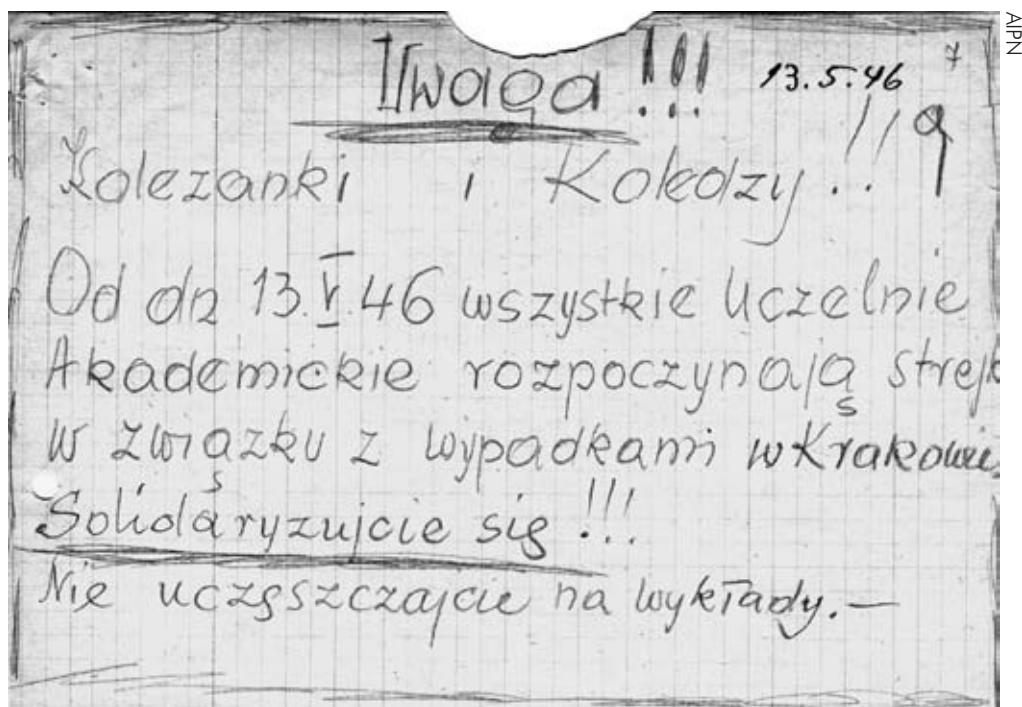 Uwaga !!! 13.5.46 7
AIPN
Koleżanki i Koledzy..!! 9
Od dn 13.V.46 wszystkie Uczelnie
Akademickie rozpoczynają strejk
w związku z wypadkami w Krakowie
Solidaryzujcie się !!!
Nie uczęszczajcie na wykłady.—